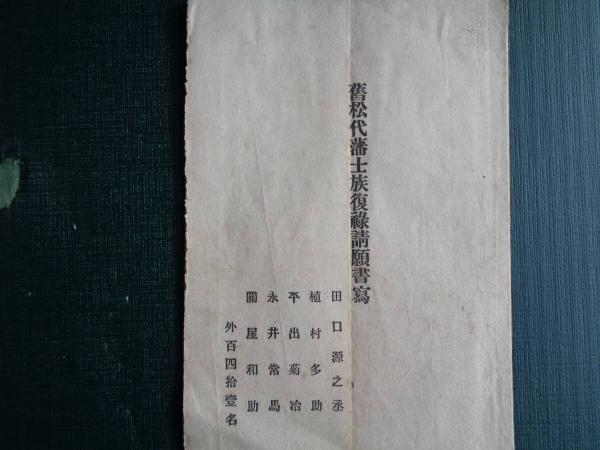 舊松代藩士族復祿請願書寫
田口源之丞
植村多助
平出菊冶
永井常馬
關屋和助
外百四拾壹名